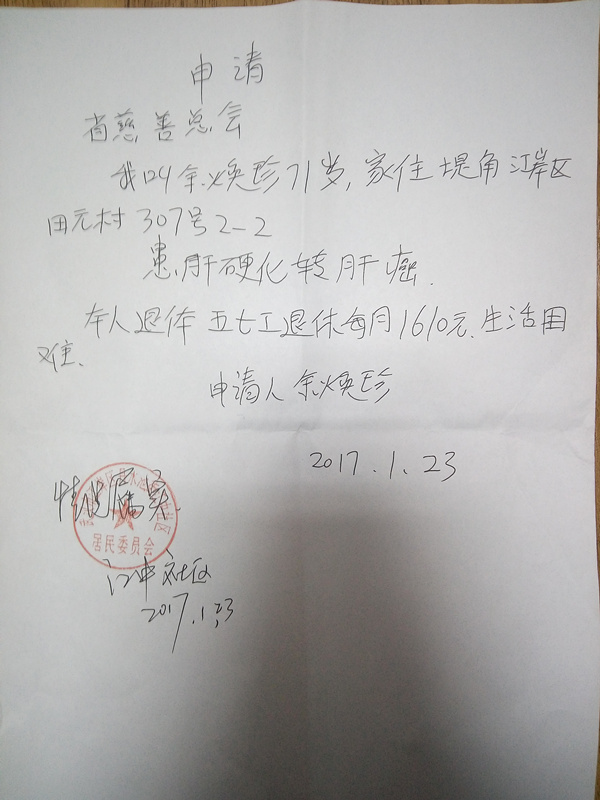 申请
省慈善总会
我叫余焕珍71岁,家住堤角江岸区
田元村307号2-2
患肝硬化转肝癌.
本人退体五七工退休每月1610元.生活困
难.
申请人余焕珍
2017.1.23
情况属实.
居民委员会
社区
2017.1.23